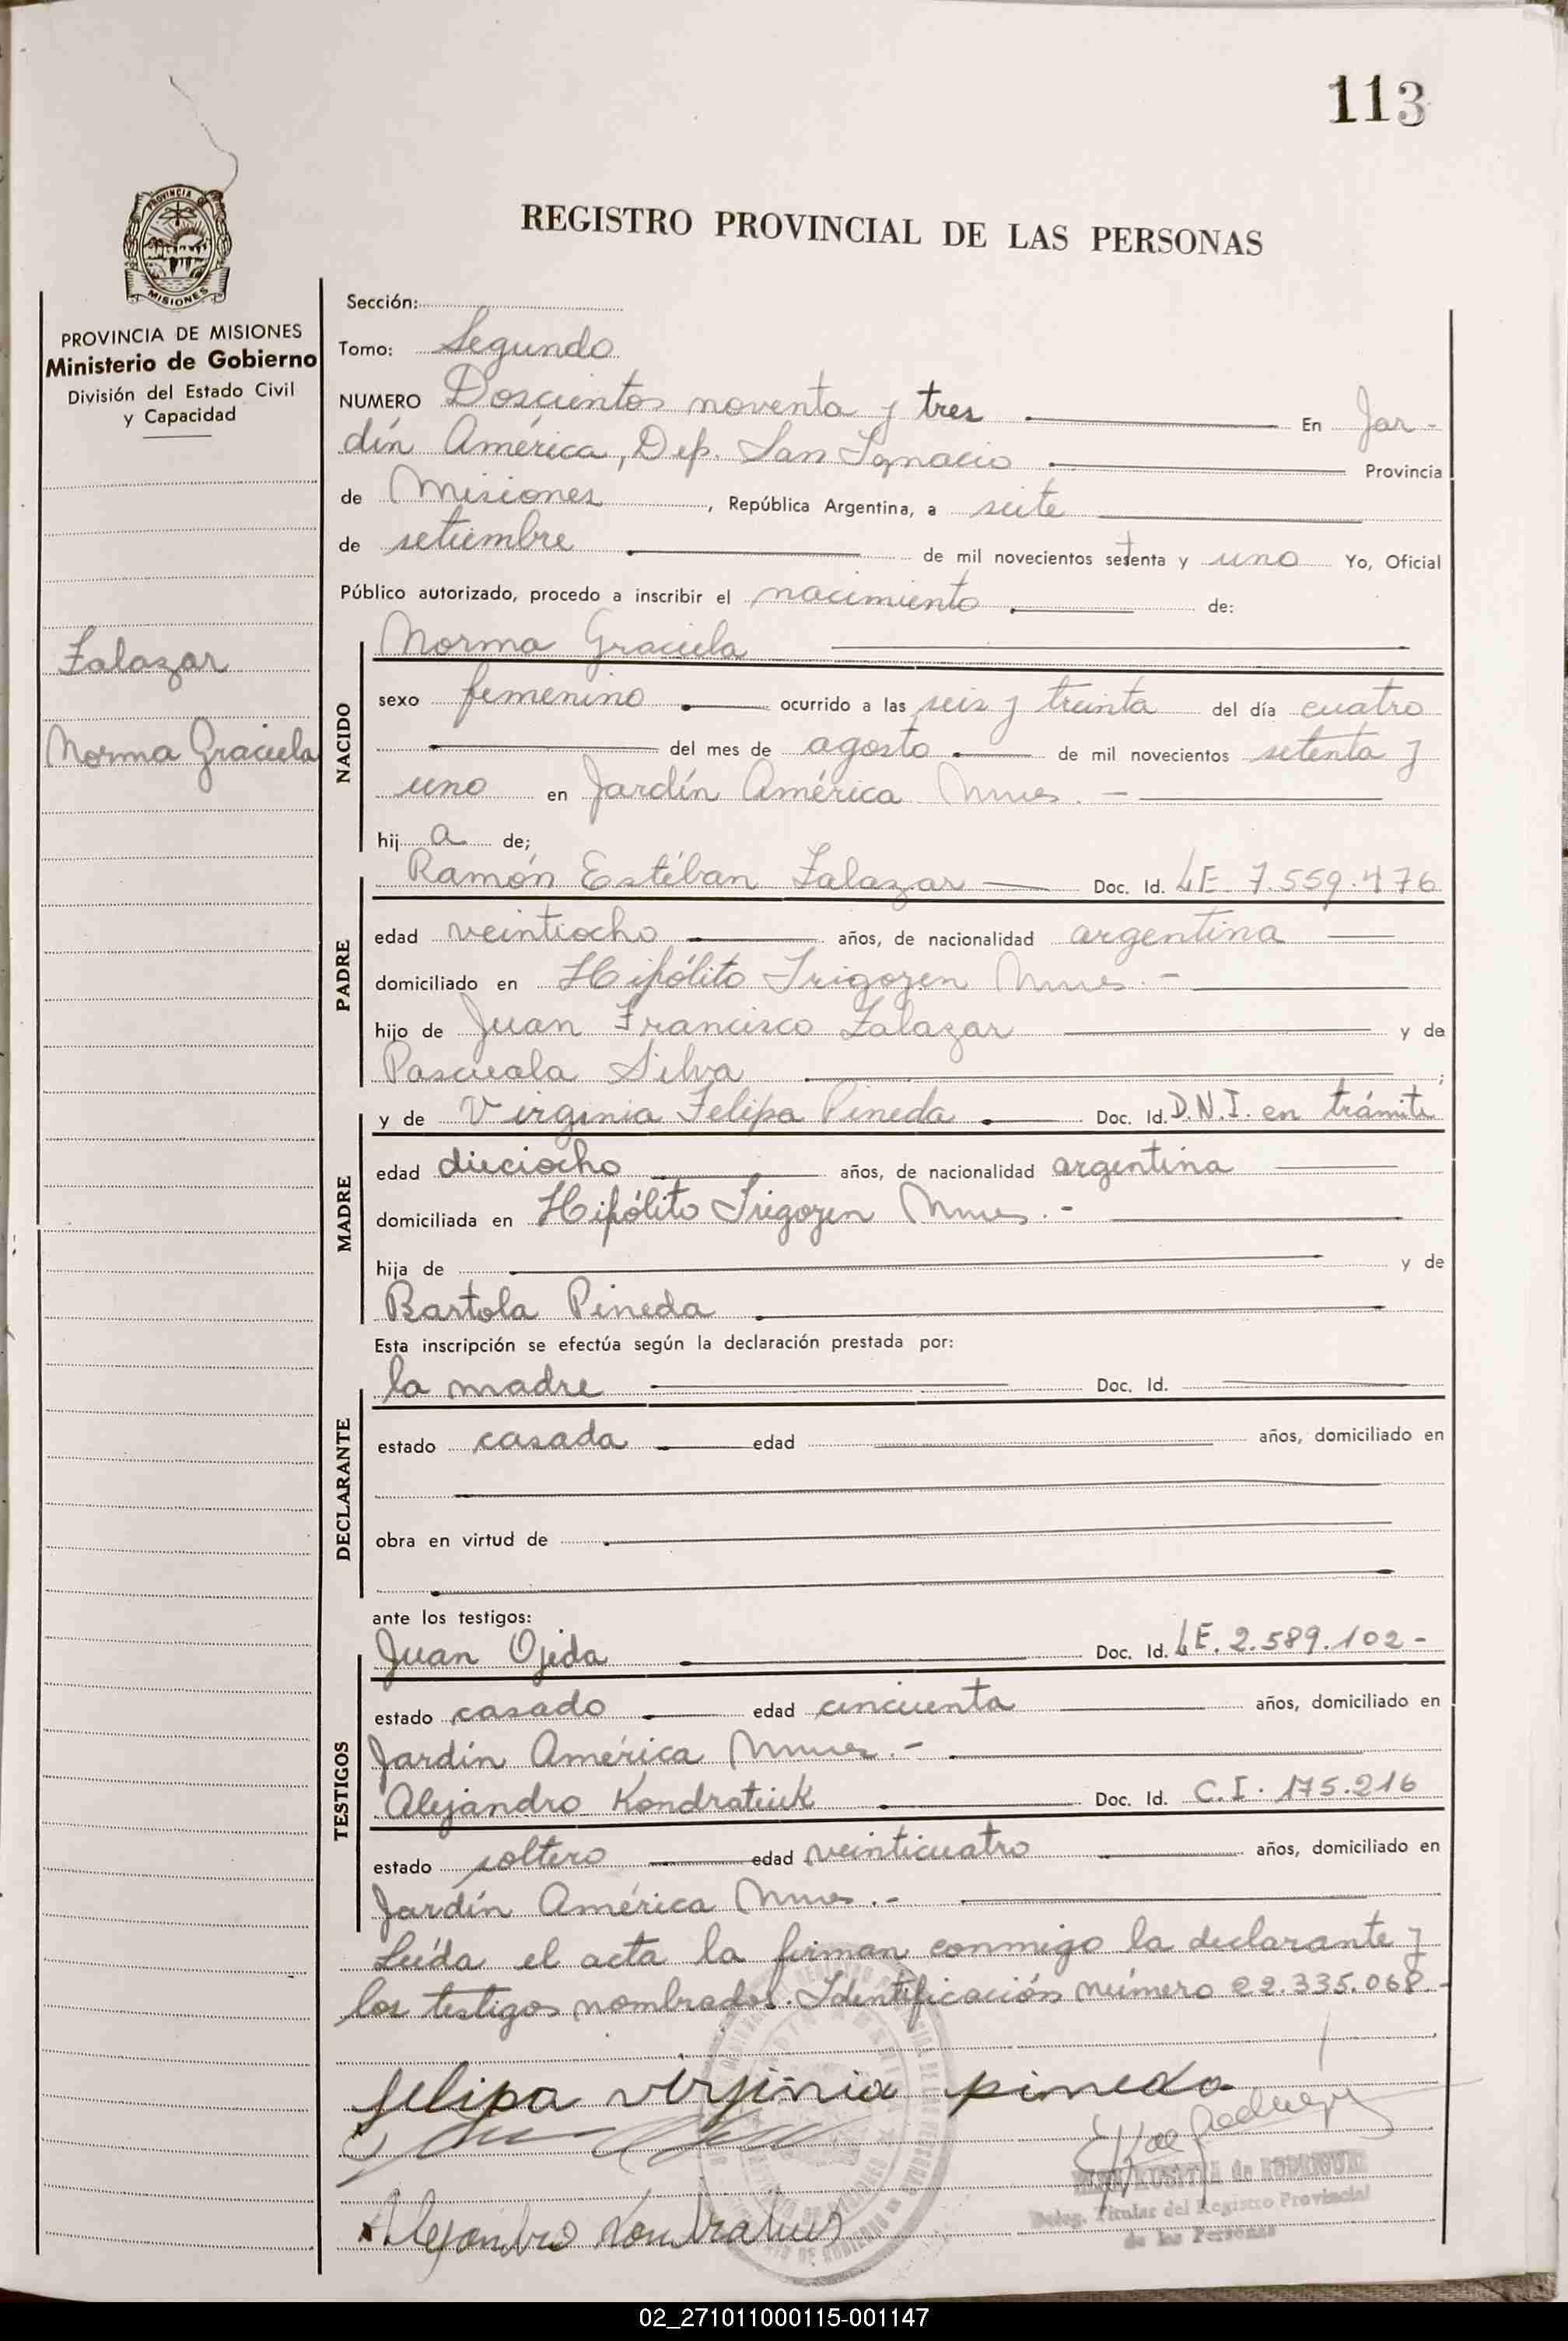 113
REGISTRO PROVINCIAL DE LAS PERSONAS
PROVINCIA DE
MISIONES
PROVINCIA DE MISIONES
Ministerio de Gobierno
División del Estado Civil
y Capacidad
Zalazar
Norma Graciela
Sección:
Tomo: Segundo
NUMERO Doscientos noventa y tres En Jar-
dín América, Dep. San Ignacio Provincia
de Misiones, República Argentina, a siete
de setiembre de mil novecientos setenta y uno Yo, Oficial
Público autorizado, procedo a inscribir el nacimiento de:
NACIDO
Norma Graciela
sexo femenino ocurrido a las seis y treinta del día cuatro
del mes de agosto de mil novecientos setenta y
uno en Jardín América Mnes.-
hija de;
PADRE
Ramón Estéban Zalazar Doc. Id. LE. 7.559.476
edad veintiocho años, de nacionalidad argentina
domiciliado en Hipólito Irigoyen Mnes.-
hijo de Juan Francisco Zalazar y de
Pascuala Silva ;
MADRE
y de Virginia Felipa Pineda Doc. Id. D.N.I. en trámite
edad dieciocho años, de nacionalidad argentina
domiciliada en Hipólito Irigoyen Mnes.-
hija de y de
Bartola Pineda
Esta inscripción se efectúa según la declaración prestada por:
DECLARANTE
la madre Doc. Id.
estado casada edad años, domiciliado en
obra en virtud de
ante los testigos:
TESTIGOS
Juan Ojeda Doc. Id. LE. 2.589.102-
estado casado edad cincuenta años, domiciliado en
Jardín América Mnes.-
Alejandro Kondratiuk Doc. Id. C.I. 175.216
estado soltero edad veinticuatro años, domiciliado en
Jardín América Mnes.-
Leída el acta la firman conmigo la declarante y
los testigos nombrados. Identificación número 22.335.068.-
felipa virjinia pineda
Alejandro
de RODRIGUEZ
Deleg. Titular del Registro Provincial
de las Personas
02_271011000115-001147